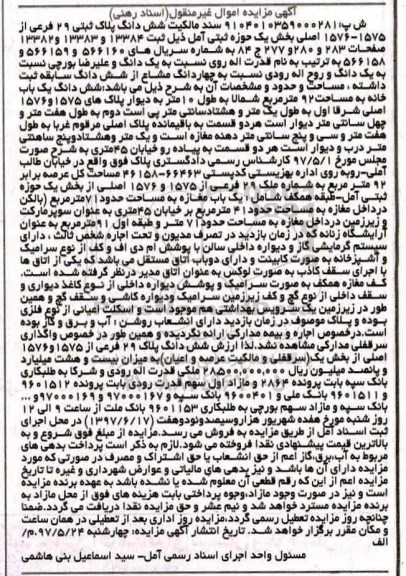 آگهی مزایده اموال غیرمنقول(اسناد رهنی)
ش پ:۹۱۰۴۰۱۰۳۵۹۰۰۰۲۸۱۱ سند مالکیت شش دانگ پلاک ثبتی ۲۹ فرعی از
۱۵۷۵-۱۵۷۶ اصلی بخش یک حوزه ثبتی آمل ذیل ثبت ۱۳۳۸۴ و ۱۳۳۸۳ و ۱۳۳۸۲
صفحات ۲۸۳ و ۲۸۰ و ۲۷۷ ج ۸۴ به شماره سریال های ۵۶۶۱۶۰ و ۵۶۶۱۵۹ و
۵۶۶۱۵۸ به ترتیب به نام قدرت اله روی نسبت به یک دانگ و علیرضا بورچی نسبت
به یک دانگ و روح اله رودی نسبت به چهاردانگ مشاع از شش دانگ سابقه ثبت
داشته ، مساحت و حدود و مشخصات آن به شرح ذیل می باشد:شش دانگ یک باب
خانه به مساحت ۹۲ مترمربع شمالا به طول ۱۰ متر به دیوار پلاک های ۱۵۷۵و۱۵۷۶
اصلی شرقا اول به طول یک متر و هشتادسانتی متر پی است دوم به طول هفت متر و
چهل سانتی متر دیوار است هردو قسمت به باقیمانده پلاک اصلی مرقوم غربا به طول
هفت متر و سی و پنج سانتی متر دهنه مغازه است و یک متر وهشتادوپنج سانتی
متر درب و دیوار است هر دو قسمت به پیاده رو خیابان ۴۵متری به شرح صورت
مجلس مورخ ۹۷/۵/۱ کارشناس رسمی دادگستری پلاک فوق واقع در خیابان طالب
آملی-روبه روی اداره بهزیستی کدپستی ۶۶۴۶۳-۴۶۱۵۸ مساحت کل عرصه برابر
۹۲ متر مربع به شماره ملک ۲۹ فرعی از ۱۵۷۵ و ۱۵۷۶ اصلی از بخش یک حوزه
ثبتی آمل-طبقه همکف شامل: یک باب مغازه به مساحت حدود ۷۱مترمربع (بالکن
درداخل مغازه به مساحت حدود ۴۱ مترمربع بر خیابان ۴۵متری به عنوان سوپرمارکت
و زیرزمین درداخل مغازه به مساحت حدود ۷۱ متر و طبقه اول ۹۱مترمربع به عنوان
آرایشگاه زنانه که در زمان بازدید در تصرف مدیون و تحت اجاره شخص ثالث ، دارای
سیستم گرمایش گاز و دیواره داخلی سالن با پوشش ام دی اف و کف از نوع سرامیک
و آشپزخانه به صورت کابینت و دارای دوباب اتاق مستقل می باشد که یکی از اتاق ها
با اجرای سقف کاذب به صورت لوکس به عنوان اتاق مدیر درنظر گرفته شده است.
کف مغازه همکف به صورت سرامیک و پوشش دیواره داخلی از نوع کاغذ دیواری و
سقف داخلی از نوع گچ و کف زیرزمین سرامیک ودیواره کاشی و سقف گچ و همین
طور در زیرزمین یک سرویس بهداشتی هم موجود است و اسکلت اعیانی از نوع فلزی
بوده و پلاک موصوف در زمان بازدید دارای انشعاب روشن : آب و برق و گاز بوده
است.درخصوص اجاره و بیمه مدارکی ارائه نگردیده و همین طور در خصوص واگذاری
سرقفلی مدارکی مشاهده نشد.لذا ارزش شش دانگ پلاک ۲۹ فرعی از ۱۵۷۵ و۱۵۷۶
اصلی از بخش یک(سرقفلی و مالکیت عرصه و اعیان)به میزان بیست و هشت میلیارد
و پانصد میلیون ریال ۲۸۵۰۰۰۰۰۰۰۰ ملکی قدرت اله رودی و شرکا به طلبکاری
بانک سپه بابت پرونده ۲۸۶۴ و مازاد اول سهم قدرت رودی بابت پرونده ۹۶۰۱۵۱۲
و ۹۶۰۱۵۱۱ بانک ملی و ۹۶۰۰۴۰۱ بانک سپه و ۹۷۰۰۱۶۷ و ۹۷۰۰۱۶۹ و ...
بانک سپه و مازاد سهم بورچی به طلبکاری ۹۶۰۱۱۵۳ بانک ملت از ساعت ۹ الی ۱۲
روز شنبه مورخ هفده شهریور هزاروسیصدونودوهفت (۱۳۹۷/۶/۱۷) در محل اجرای
ثبت اسناد آمل از طریق مزایده به فروش می رسد.مزایده از مبلغ فوق شروع و به
بالاترین قیمت پیشنهادی نقدا فروخته می شود.لازم به ذکر است پرداخت بدهی های
مربوط به آب،برق،گاز اعم از حق انشعاب یا حق اشتراک و مصرف در صورتی که مورد
مزایده دارای آن ها باشد و نیز بدهی های مالیاتی و عوارض شهرداری و غیره تا تاریخ
مزایده اعم از این که رقم قطعی آن معلوم شده یا نشده باشد به عهده برنده مزایده
است و نیز در صورت وجود مازاد،وجوه پرداختی بابت هزینه های فوق از محل مازاد به
برنده مزایده مسترد خواهد شد و نیم عشر و حق مزایده نقدا دریافت می گردد.ضمنا
چنانچه روز مزایده تعطیل رسمی گردد،مزایده روز اداری بعد از تعطیلی در همان ساعت
و مکان مقرر برگزار خواهد شد. تاریخ انتشار آگهی مزایده: چهارشنبه ۹۷/۵/۲۴.م/
الف
مسئولل واحد اجرای اسناد رسمی آمل- سید اسماعیل بنی هاشمی